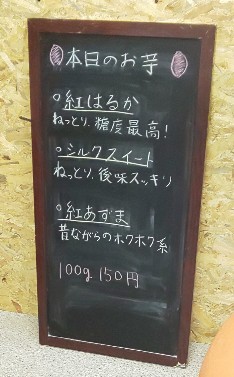 本日のお芋
○紅はるか
ねっとり、糖度最高!
○シルクスイート
ねっとり、後味スッキリ
○紅あずま
昔ながらのホクホク系
100g 150円